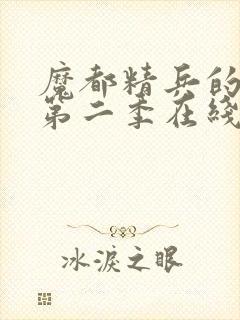 魔都精兵的
第二季在线
冰淚之眼